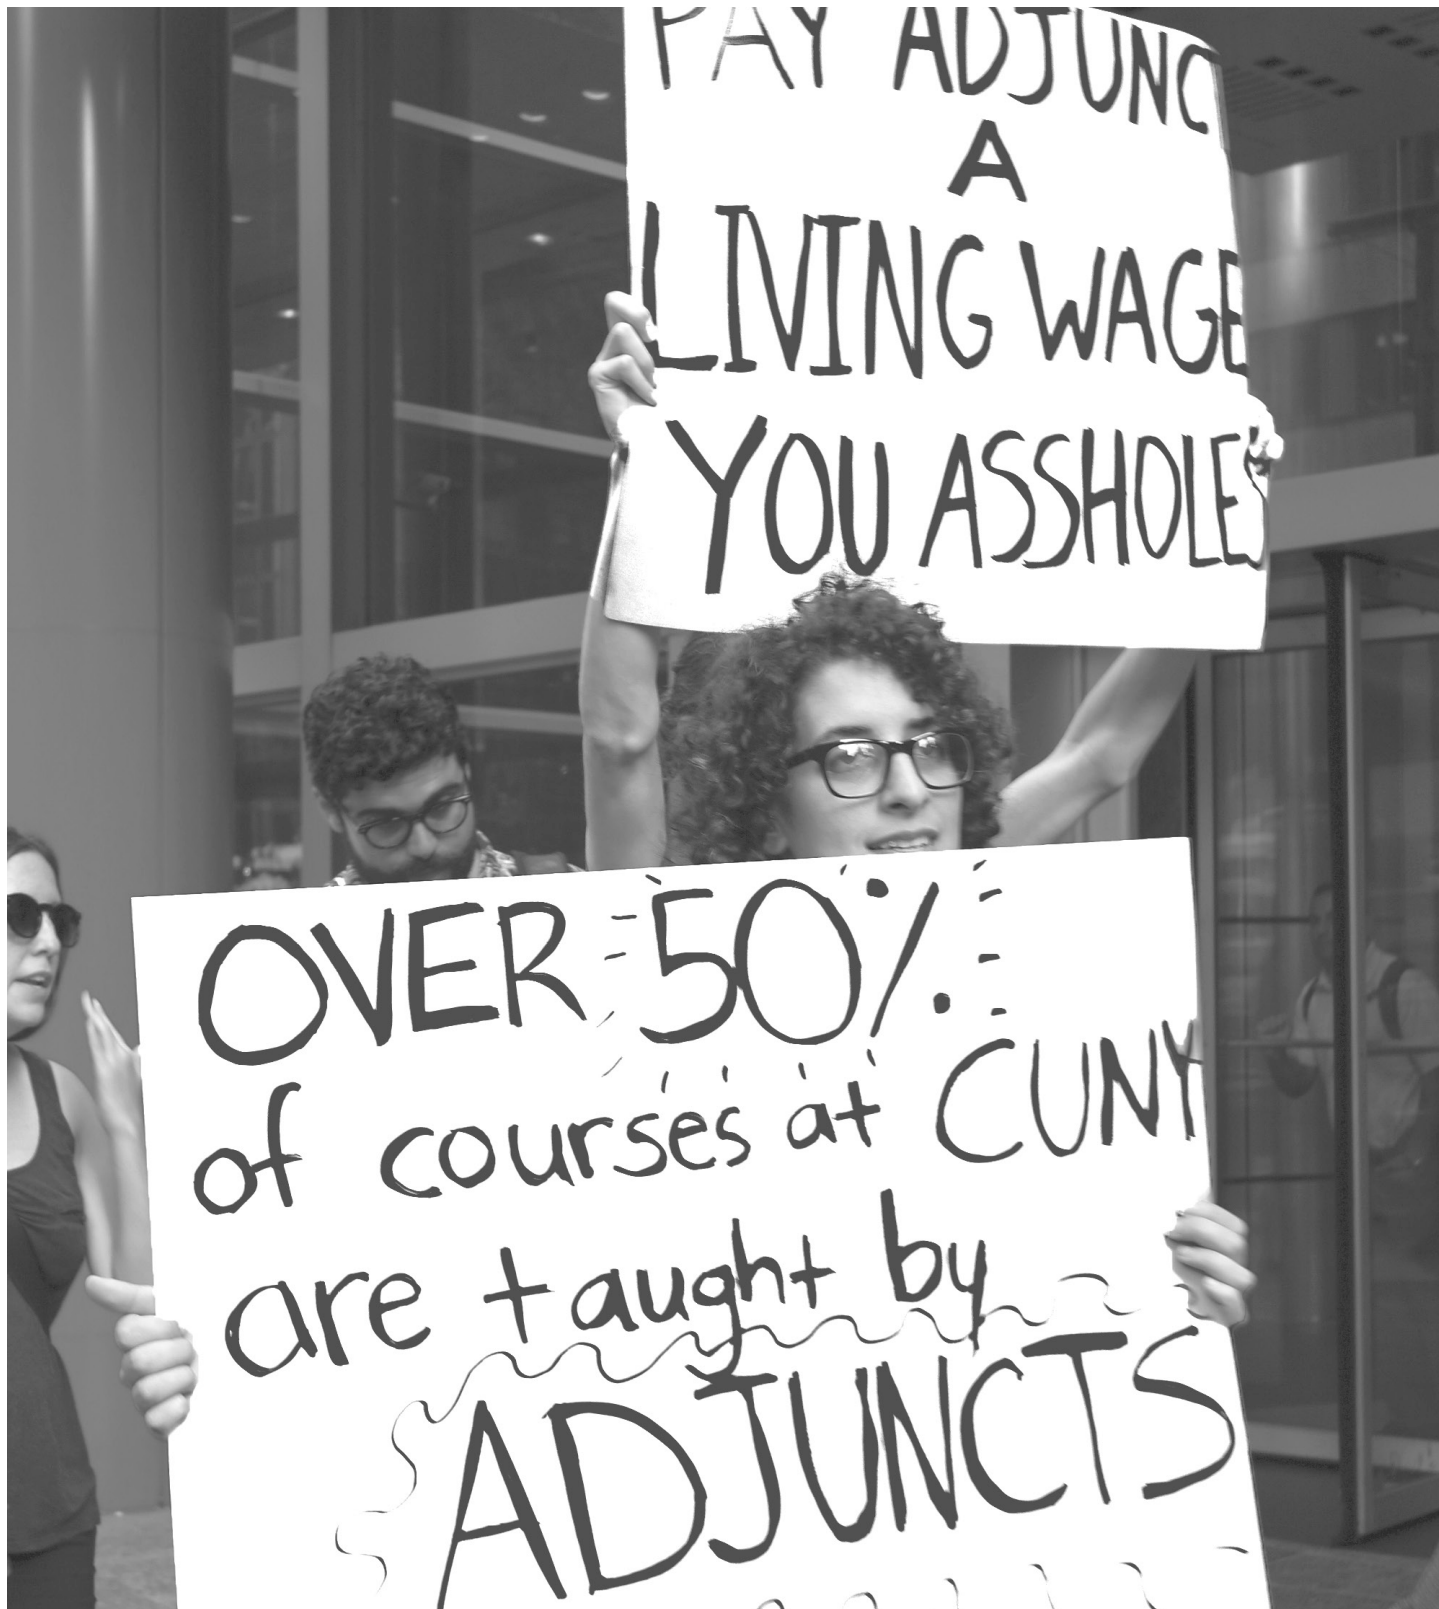 PAY ADJUNC
A
LIVING WAGE
YOU ASSHOLES
OVER 50%
of courses at CUNY
are taught by
ADJUNCTS